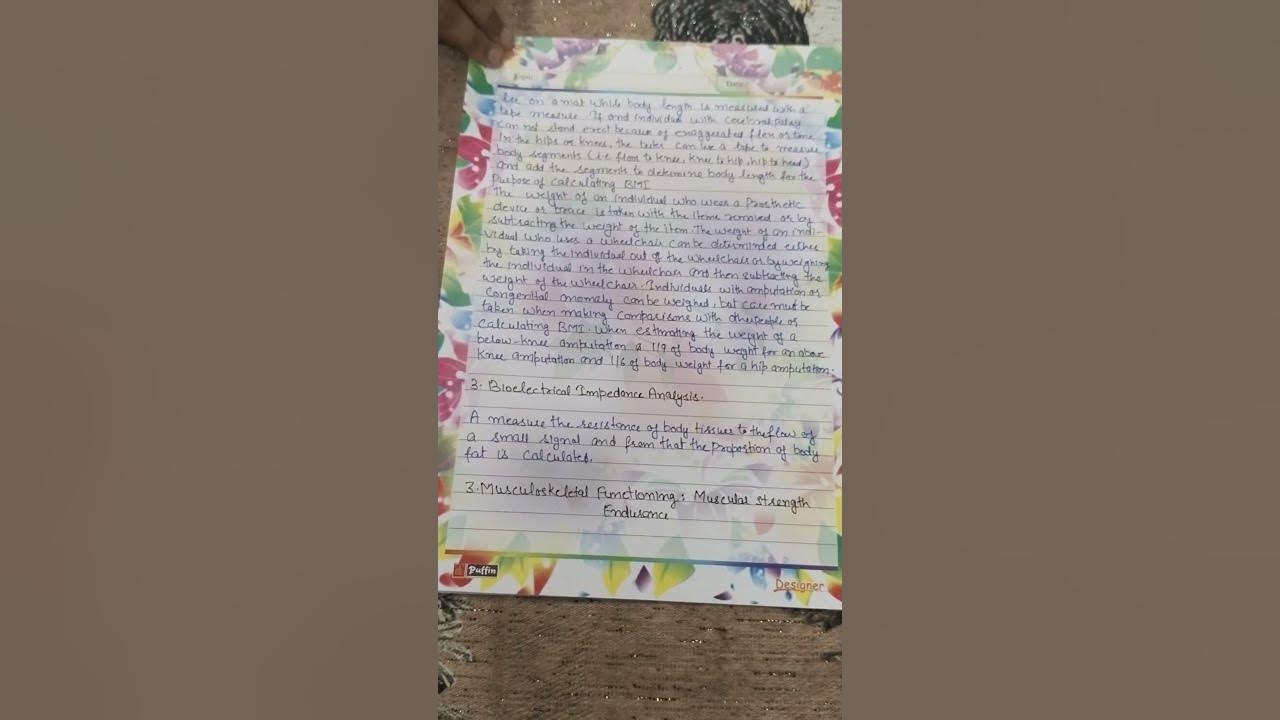 lee on a mat while body length is measured with a
tape measure. If and individual with cerebral palsy
can not stand erect because of exaggerated flexor tone
in the hips or knees, the tester can use a tape to measure
body segments (i.e floor to knee, knee to hip, hip to head)
and add the segments to determine body length for the
purpose of calculating BMI
The weight of an individual who wears a prosthetic
device or brace is taken with the items removed or by
subtracting the weight of the item. The weight of an indi-
vidual who uses a wheelchair can be determinded either
by taking the individual out of the wheelchair or by weighing
the individual in the wheelchair and then subtracting the
weight of the wheelchair. Individuals with amputation or
Congenital anomaly can be weighed, but care must be
taken when making comparisons with other people or
calculating BMI. When estimating the weight of a
below-knee amputation a 1/9 of body weight for an above
knee amputation and 1/6 of body weight for a hip amputation.
3. Bioelectrical Impedance Analysis.
A measure the resistance of body tissues to the flow of
a small signal and from that the proportion of body
fat is calculates.
3. Musculoskeletal Functioning: Muscular strength
Endurance
Puffin
Designer